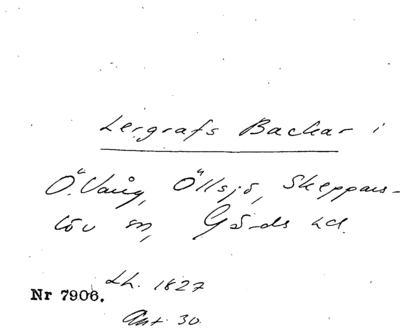 Lergrafs Backar i
Ö. Vång, Öllsjö, Skeppars-
löv sn, Gärds hd.
Lh. 1827
Nr 7906.
Akt 30